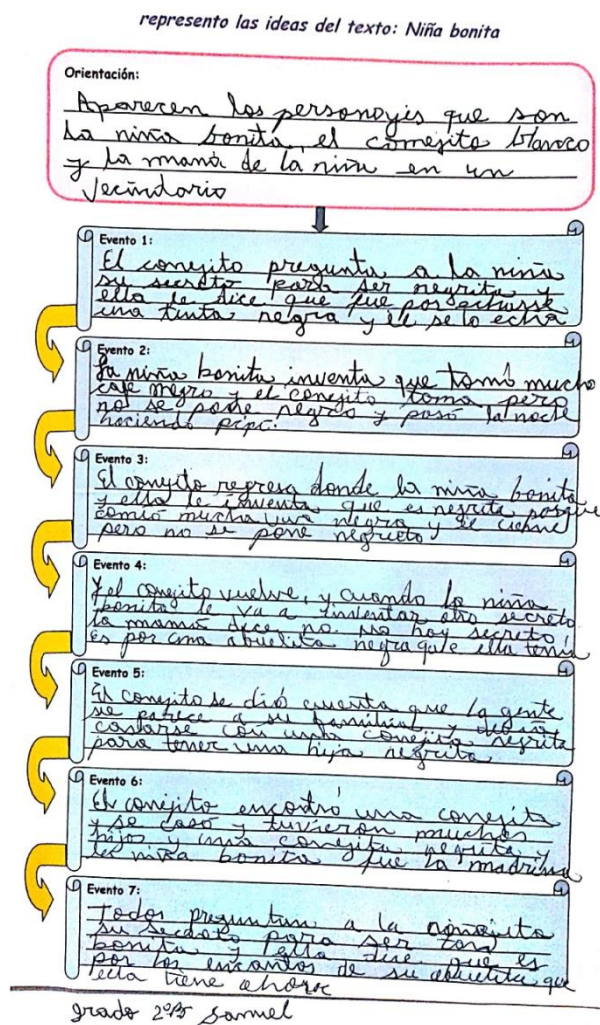 represento las ideas del texto: Niña bonita
Orientación:
Aparecen los personajes que son
la niña bonita, el conejito blanco
y la mamá de la niña en un
vecindario
Evento 1:
El conejito pregunta a la niña
su secreto para ser negrita y
ella le dice que fue por echarse
una tinta negra y él se lo echa
Evento 2:
La niña bonita inventa que tomó mucho
café negro y el conejito toma pero
no se pone negro y pasó la noche
haciendo pipí.
Evento 3:
El conejito regresa donde la niña bonita
y ella le inventa que es negrita porque
comió mucha uva negra y él
pero no se pone negrito
Evento 4:
Y el conejito vuelve, y cuando la niña
bonita le va a inventar otro secreto
la mamá dice no no hay secreto,
Es por una abuelita negra que ella tenía
Evento 5:
El conejito se dió cuenta que la gente
se parece a su familia y debía
casarse con una conejita negrita
para tener una hija negrita
Evento 6:
El conejito encontró una conejita
y se casó y tuvieron muchos
hijos y una conejita negrita y
la niña bonita fue la madrina
Evento 7:
Todos preguntan a la conejita
su secreto para ser tan
bonita y ella dice que es
por los encantos de su abuelita que
ella tiene ahora
grado 2º Samuel